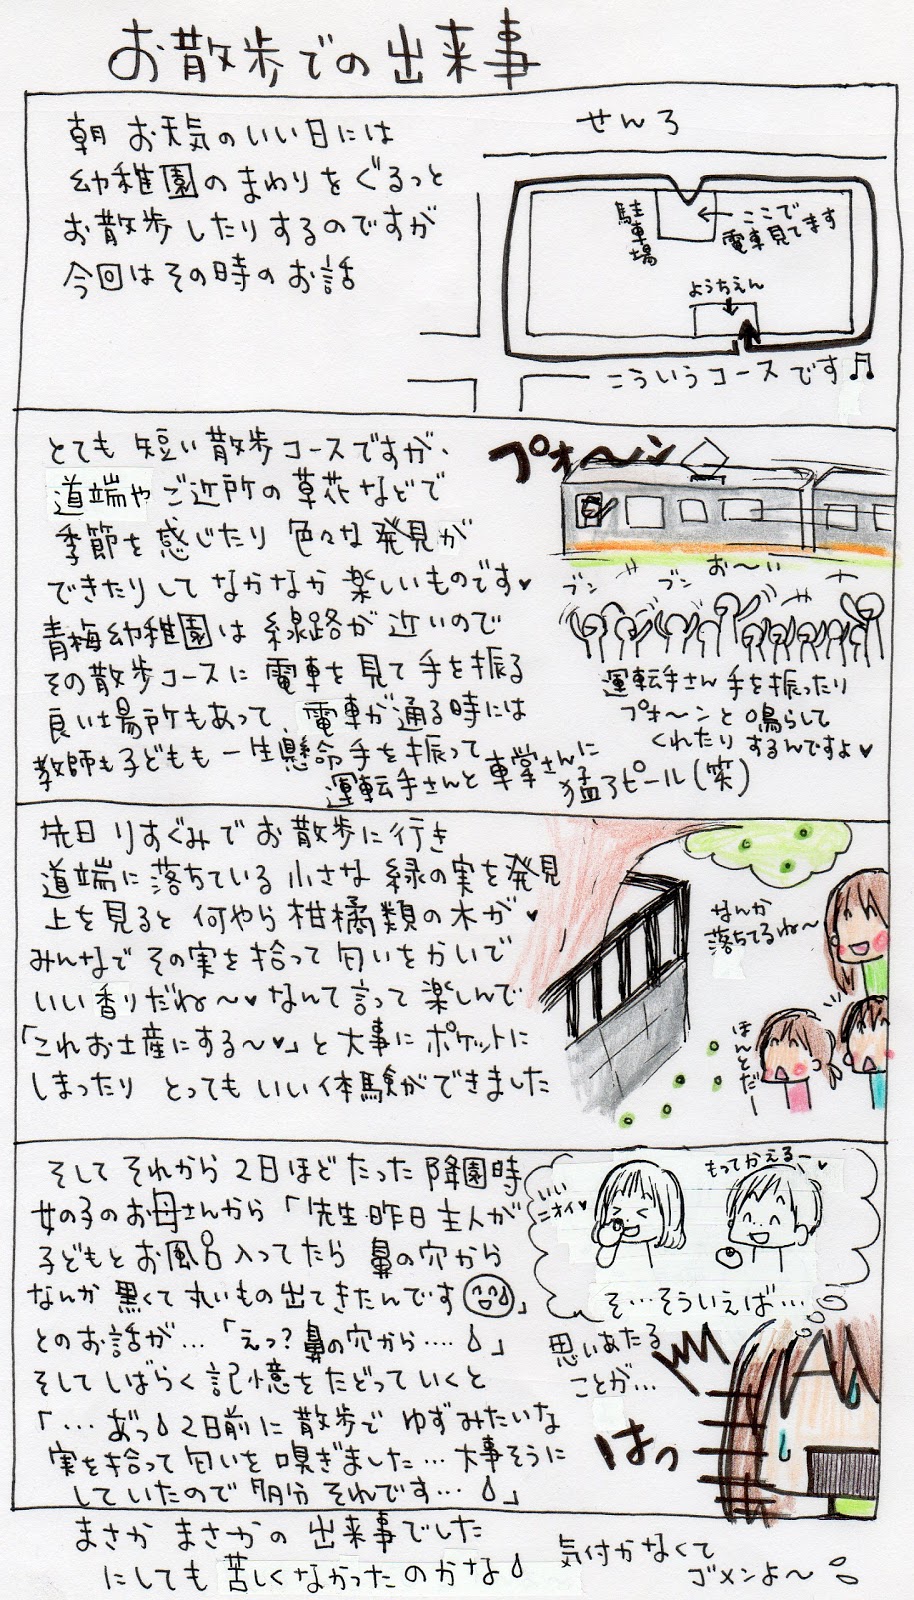 お散歩での出来事
朝 お天気のいい日には
幼稚園のまわりをぐるっと
お散歩したりするのですが
今回はその時のお話
せんろ
駐車場
←ここで
電車見てます
ようちえん
こういうコースです♬
とても 短い散歩コースですが、
道端や ご近所の 草花などで
季節を 感じたり 色々な発見が
できたりして なかなか 楽しいものです♥
青梅幼稚園は 線路が 近いので
その散歩コースに 電車を 見て 手を振る
良い場所もあって、電車が通る時には
教師も子どもも 一生懸命手を振って
運転手さんと 車掌さんに
猛アピール(笑)
プォ〜ン
ブン
ブン
お〜い
運転手さん 手を振ったり
プォ〜ンと 鳴らして
くれたり するんですよ♥
先日 りすぐみで お散歩に行き
道端に 落ちている 小さな 緑の実を発見
上を見ると 何やら 柑橘類の木が♥
みんなで その実を拾って 匂いをかいで
いい香りだね〜♥ なんて 言って 楽しんで
「これお土産にする〜♥」と 大事に ポケットに
しまったり とっても いい体験ができました
なんか
落ちてるね〜
ほんとだー
そして それから 2日ほど たった 降園時
女の子の お母さんから 「先生 昨日 主人が
子どもと お風呂入ってたら 鼻の穴から
なんか 黒くて 丸いもの 出てきたんです」
とのお話が…「えっ?鼻の穴から…。」
そして しばらく 記憶を たどっていくと
「…あっ 2日前に 散歩で ゆずみたいな
実を拾って 匂いを 嗅ぎました… 大事そうに
していたので 多分 それです…」
いい
ニオイ♥
もってかえるー♥
そ…そういえば…
思いあたる
ことが…
はっ
まさか まさかの 出来事でした
にしても 苦しくなかったのかな
気付かなくて
ゴメンよ〜